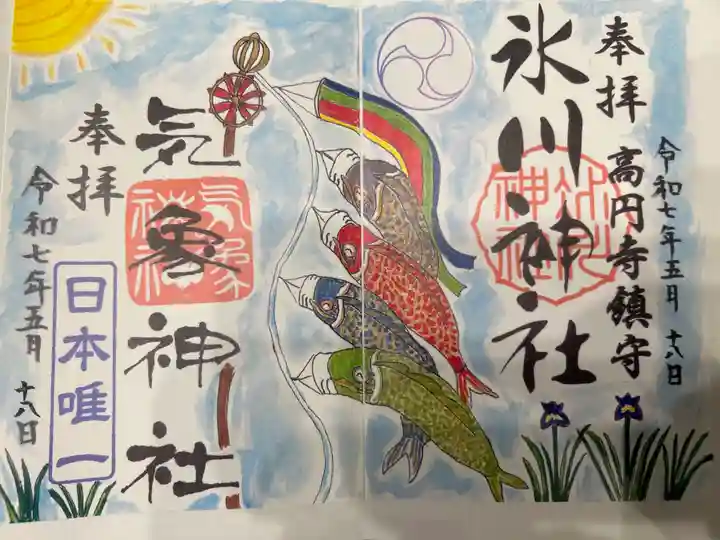 奉拝
高円寺鎮守
令和七年五月
十八日
氷川神社
気象神社
奉拝
令和七年五月
十八日
日本唯一